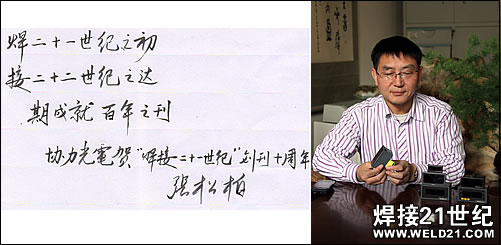 焊二十一世纪之初
接二十二世纪之达
期成就 百年之刊
协力光電贺“焊接二十一世纪”创刊十周年
张松柏
焊接21世纪
WWW.WELD21.COM